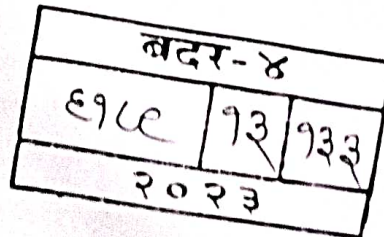 बदर-४
६१८९ १३ १३३
२०२३